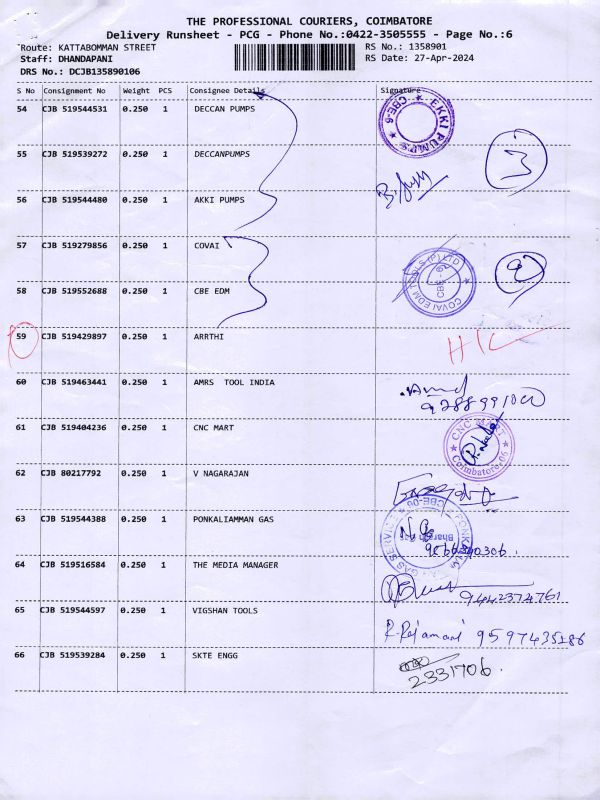 THE PROFESSIONAL COURIERS, COIMBATORE
Delivery Runsheet - PCG - Phone No.:0422-3505555 - Page No.:6
Route: KATTABOMMAN STREET RS No.: 1358901
Staff: DHANDAPANI RS Date: 27-Apr-2024
DRS No.: DCJB135890106
S No Consignment No Weight PCS Consignee Details Signature
54 CJB 519544531 0.250 1 DECCAN PUMPS
EKKI PUMPS ★ CBE-6 ★
55 CJB 519539272 0.250 1 DECCANPUMPS
3
56 CJB 519544480 0.250 1 AKKI PUMPS
57 CJB 519279856 0.250 1 COVAI
COVAI EDM TOOLS (P) LTD CBE - 6
2
58 CJB 519552688 0.250 1 CBE EDM
59 CJB 519429897 0.250 1 ARRTHI
H/C
60 CJB 519463441 0.250 1 AMRS TOOL INDIA
61 CJB 519404236 0.250 1 CNC MART
CNC MART Coimbatore-06
62 CJB 80217792 0.250 1 V NAGARAJAN
63 CJB 519544388 0.250 1 PONKALIAMMAN GAS
GAS SERVICE CBE-06
64 CJB 519516584 0.250 1 THE MEDIA MANAGER
9442374761
65 CJB 519544597 0.250 1 VIGSHAN TOOLS
R.Rajamani 9597435186
66 CJB 519539284 0.250 1 SKTE ENGG
2331706.